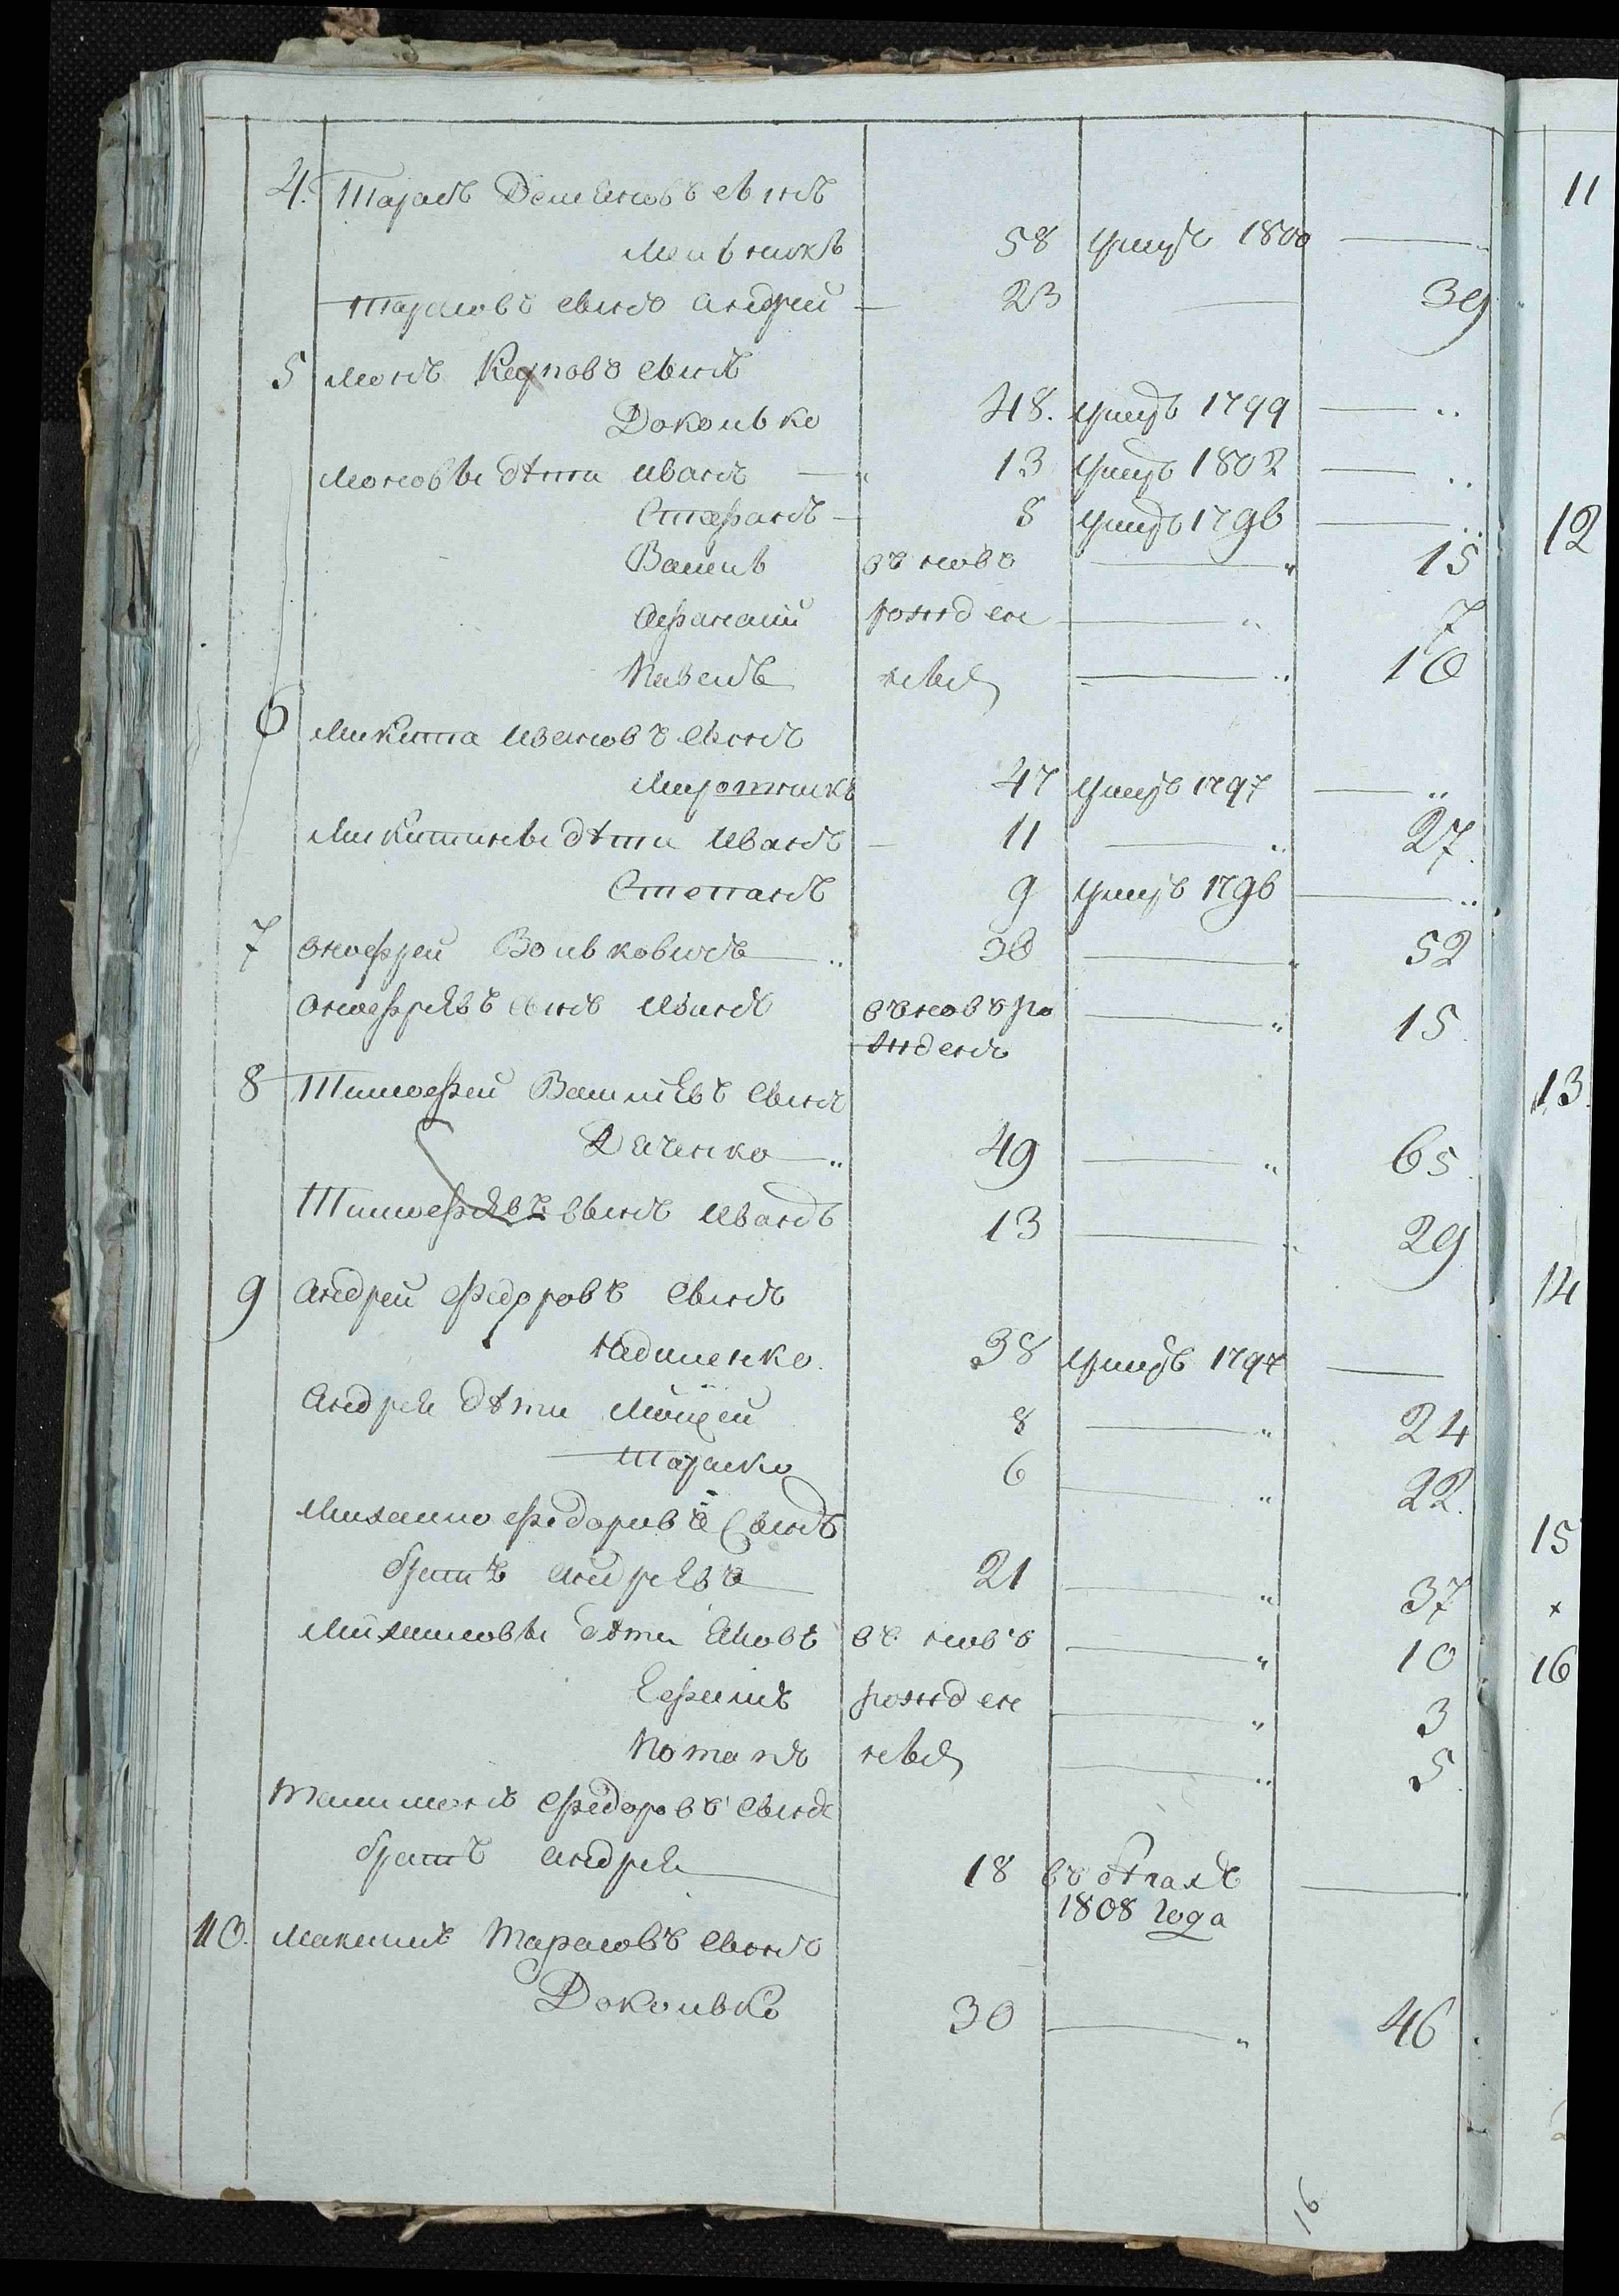 4. Тарасъ Демьяновъ сынъ
Мельникъ 58 умеръ 1800
Тарасовъ сынъ Андрей 23 39
5 Мокъ Карповъ сынъ
Доколько 48. умеръ 1799
Моковы дѣти Иванъ 13 умеръ 1802
Стефанъ 8 умеръ 1796
Василь въ новѣ 15
Афанасий рожден 7
Павелъ ныя 10
6 Микита Ивановъ сынъ
Миротникъ 47 умеръ 1797
Микитины дѣти Иванъ 11 27.
Степанъ 9 умеръ 1796
7 Онофрей 36 52
Онофрѣевъ сынъ Иванъ въновѣ ро 15
жденъ
8 Тимофей Васильевъ сынъ
Даченко 49 65
Тимофѣевъ сынъ Иванъ 13 29
9 Андрей Федоровъ сынъ
38 умеръ 1797
Андрея дѣти Мойсей 8 24
Тараско 6 22.
Михайло Федоровъ Сынъ
братъ Андрѣевъ 21 37
Михайловы дѣти Яковъ въ новѣ 10
Ефимъ рожден 3
Потапъ ныя 5
Филимонъ Федоровъ сынъ
братъ Андрея 18 въ бѣгахъ
1808 года
10. Максимъ Тарасовъ сынъ
Доколько 30 46
16
11
12
13.
14
15
16